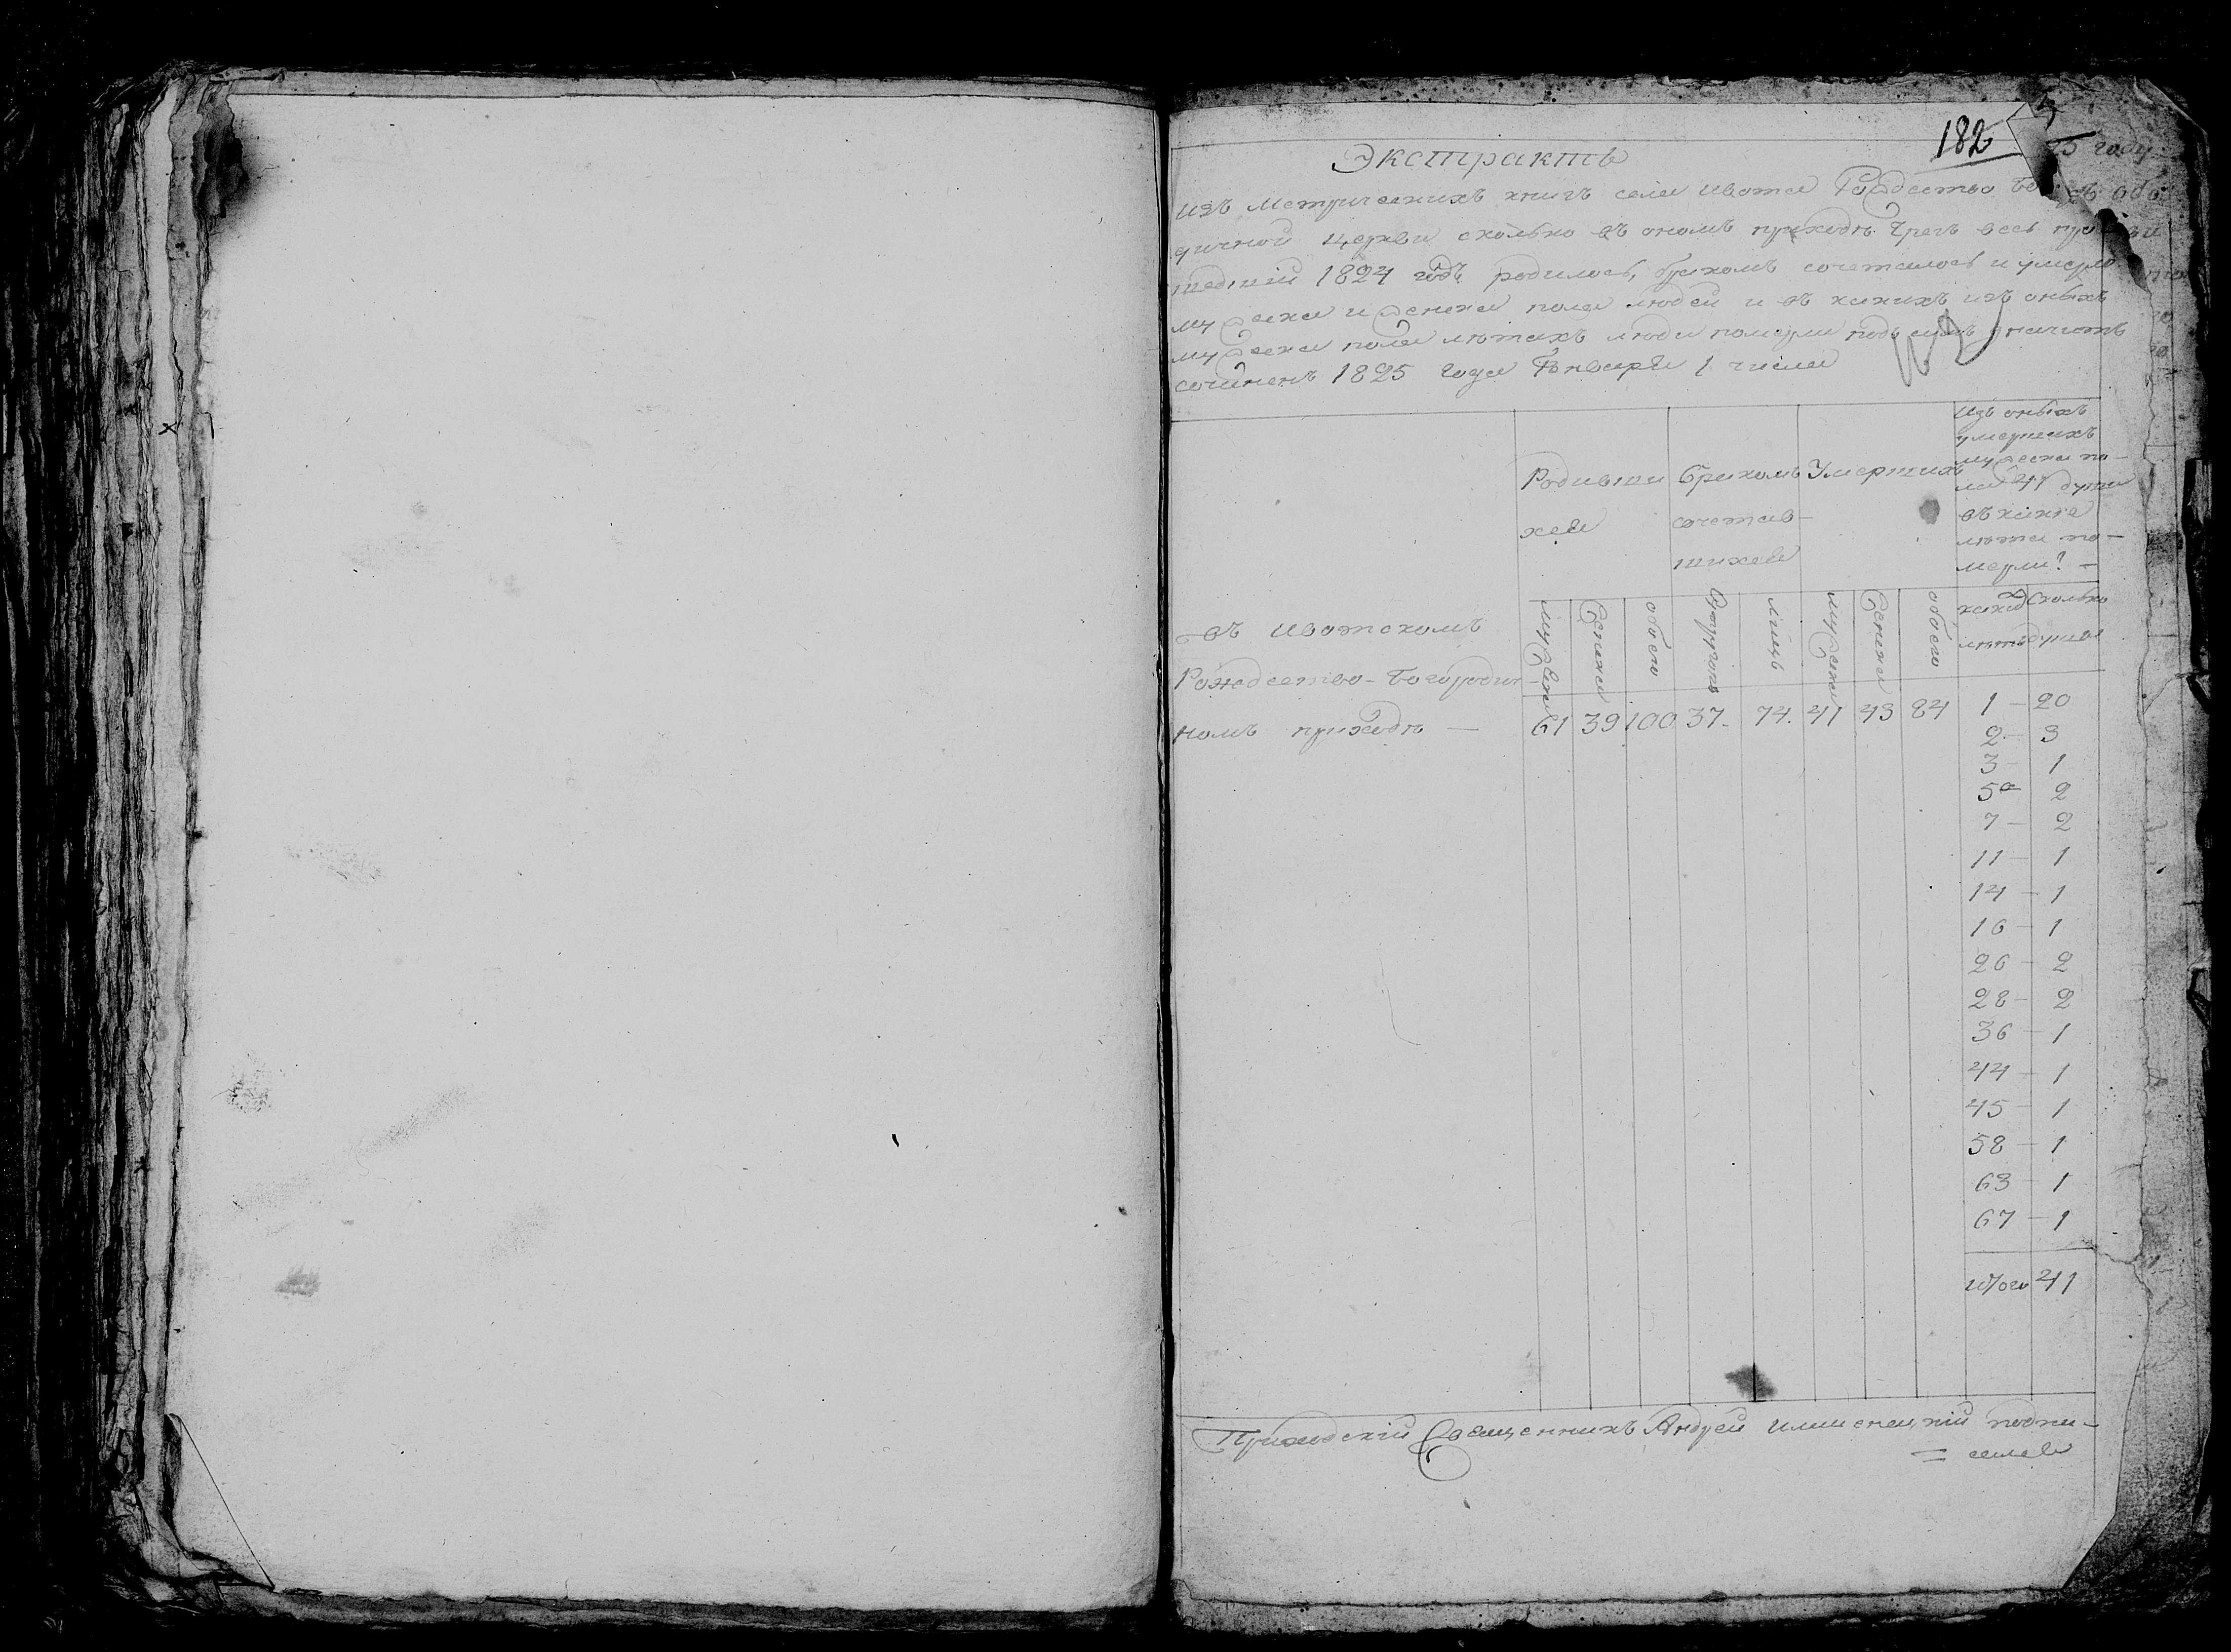 182
25 году
Экстрактъ
изъ Метрическихъ книгъ села Ивота Рождество Бо
дичной Церкви сколько въ ономъ приходѣ чрезъ весь про
шедшій 1824 годъ родилось, бракомъ сочеталось и умерло
мужеска и женска пола людей и въ какихъ изъ оныхъ
мужеска пола лѣтахъ люди померли подъ симъ значитъ
сочиненъ 1825 года Января 1 числа
Родивши
хся
Бракомъ
сочетав-
шихся
Умершихъ
Изъ оныхъ
умершихъ
мужеска по-
ла 41 души
въ какіе
лѣта по-
мерли? -
мужеска
женска
обоего
супруговъ
лицъ
мужеска
женска
обоего
лѣтъ
сколько
душъ
въ Ивотскомъ
Рождество-Богородич-
номъ приходѣ —
61 39 100 37. 74. 41 43 84
1 — 20
2 — 3
3 — 1
5 — 2
7 — 2
11 — 1
14 — 1
16 — 1
26 — 2
28 — 2
36 — 1
44 — 1
45 — 1
58 — 1
63 — 1
67 — 1
итого 41
Приходскій Священникъ Андрей подпи-
= салъ